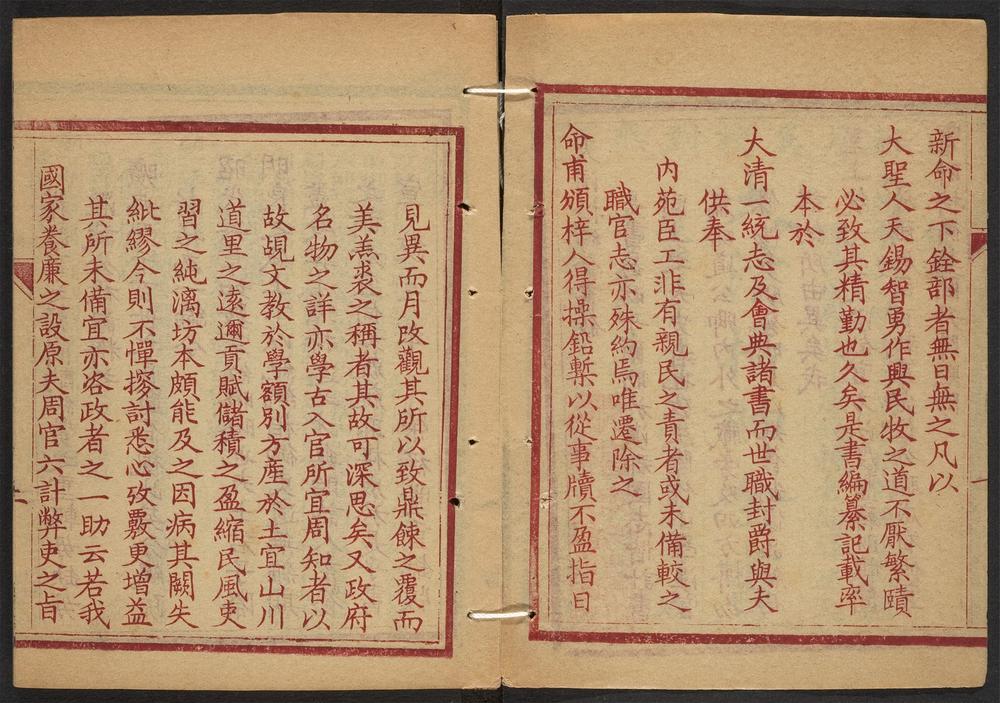 新命之下銓部者無日無之凡以
大聖人天錫智勇作興民牧之道不厭繁賾
必致其精勤也久矣是書編纂記載率
本於
大清一統志及會典諸書而世職封爵與夫
供奉
內苑臣工非有親民之責者或未備較之
職官志亦殊約焉唯遷除之
命甫頒梓人得操鉛槧以從事牘不盈指日
見異而月改觀其所以致鼎餗之覆而
美羔裘之稱者其故可深思矣又政府
名物之詳亦學古入官所宜周知者以
故覘文教於學額別方産於土宜山川
道里之遠邇貢賦儲積之盈縮民風吏
習之純漓坊本頗能及之因病其闕失
紕繆今則不憚搜討悉心攷覈更增益
其所未備宜亦咨政者之一助云若我
國家養廉之設原夫周官六計弊吏之旨